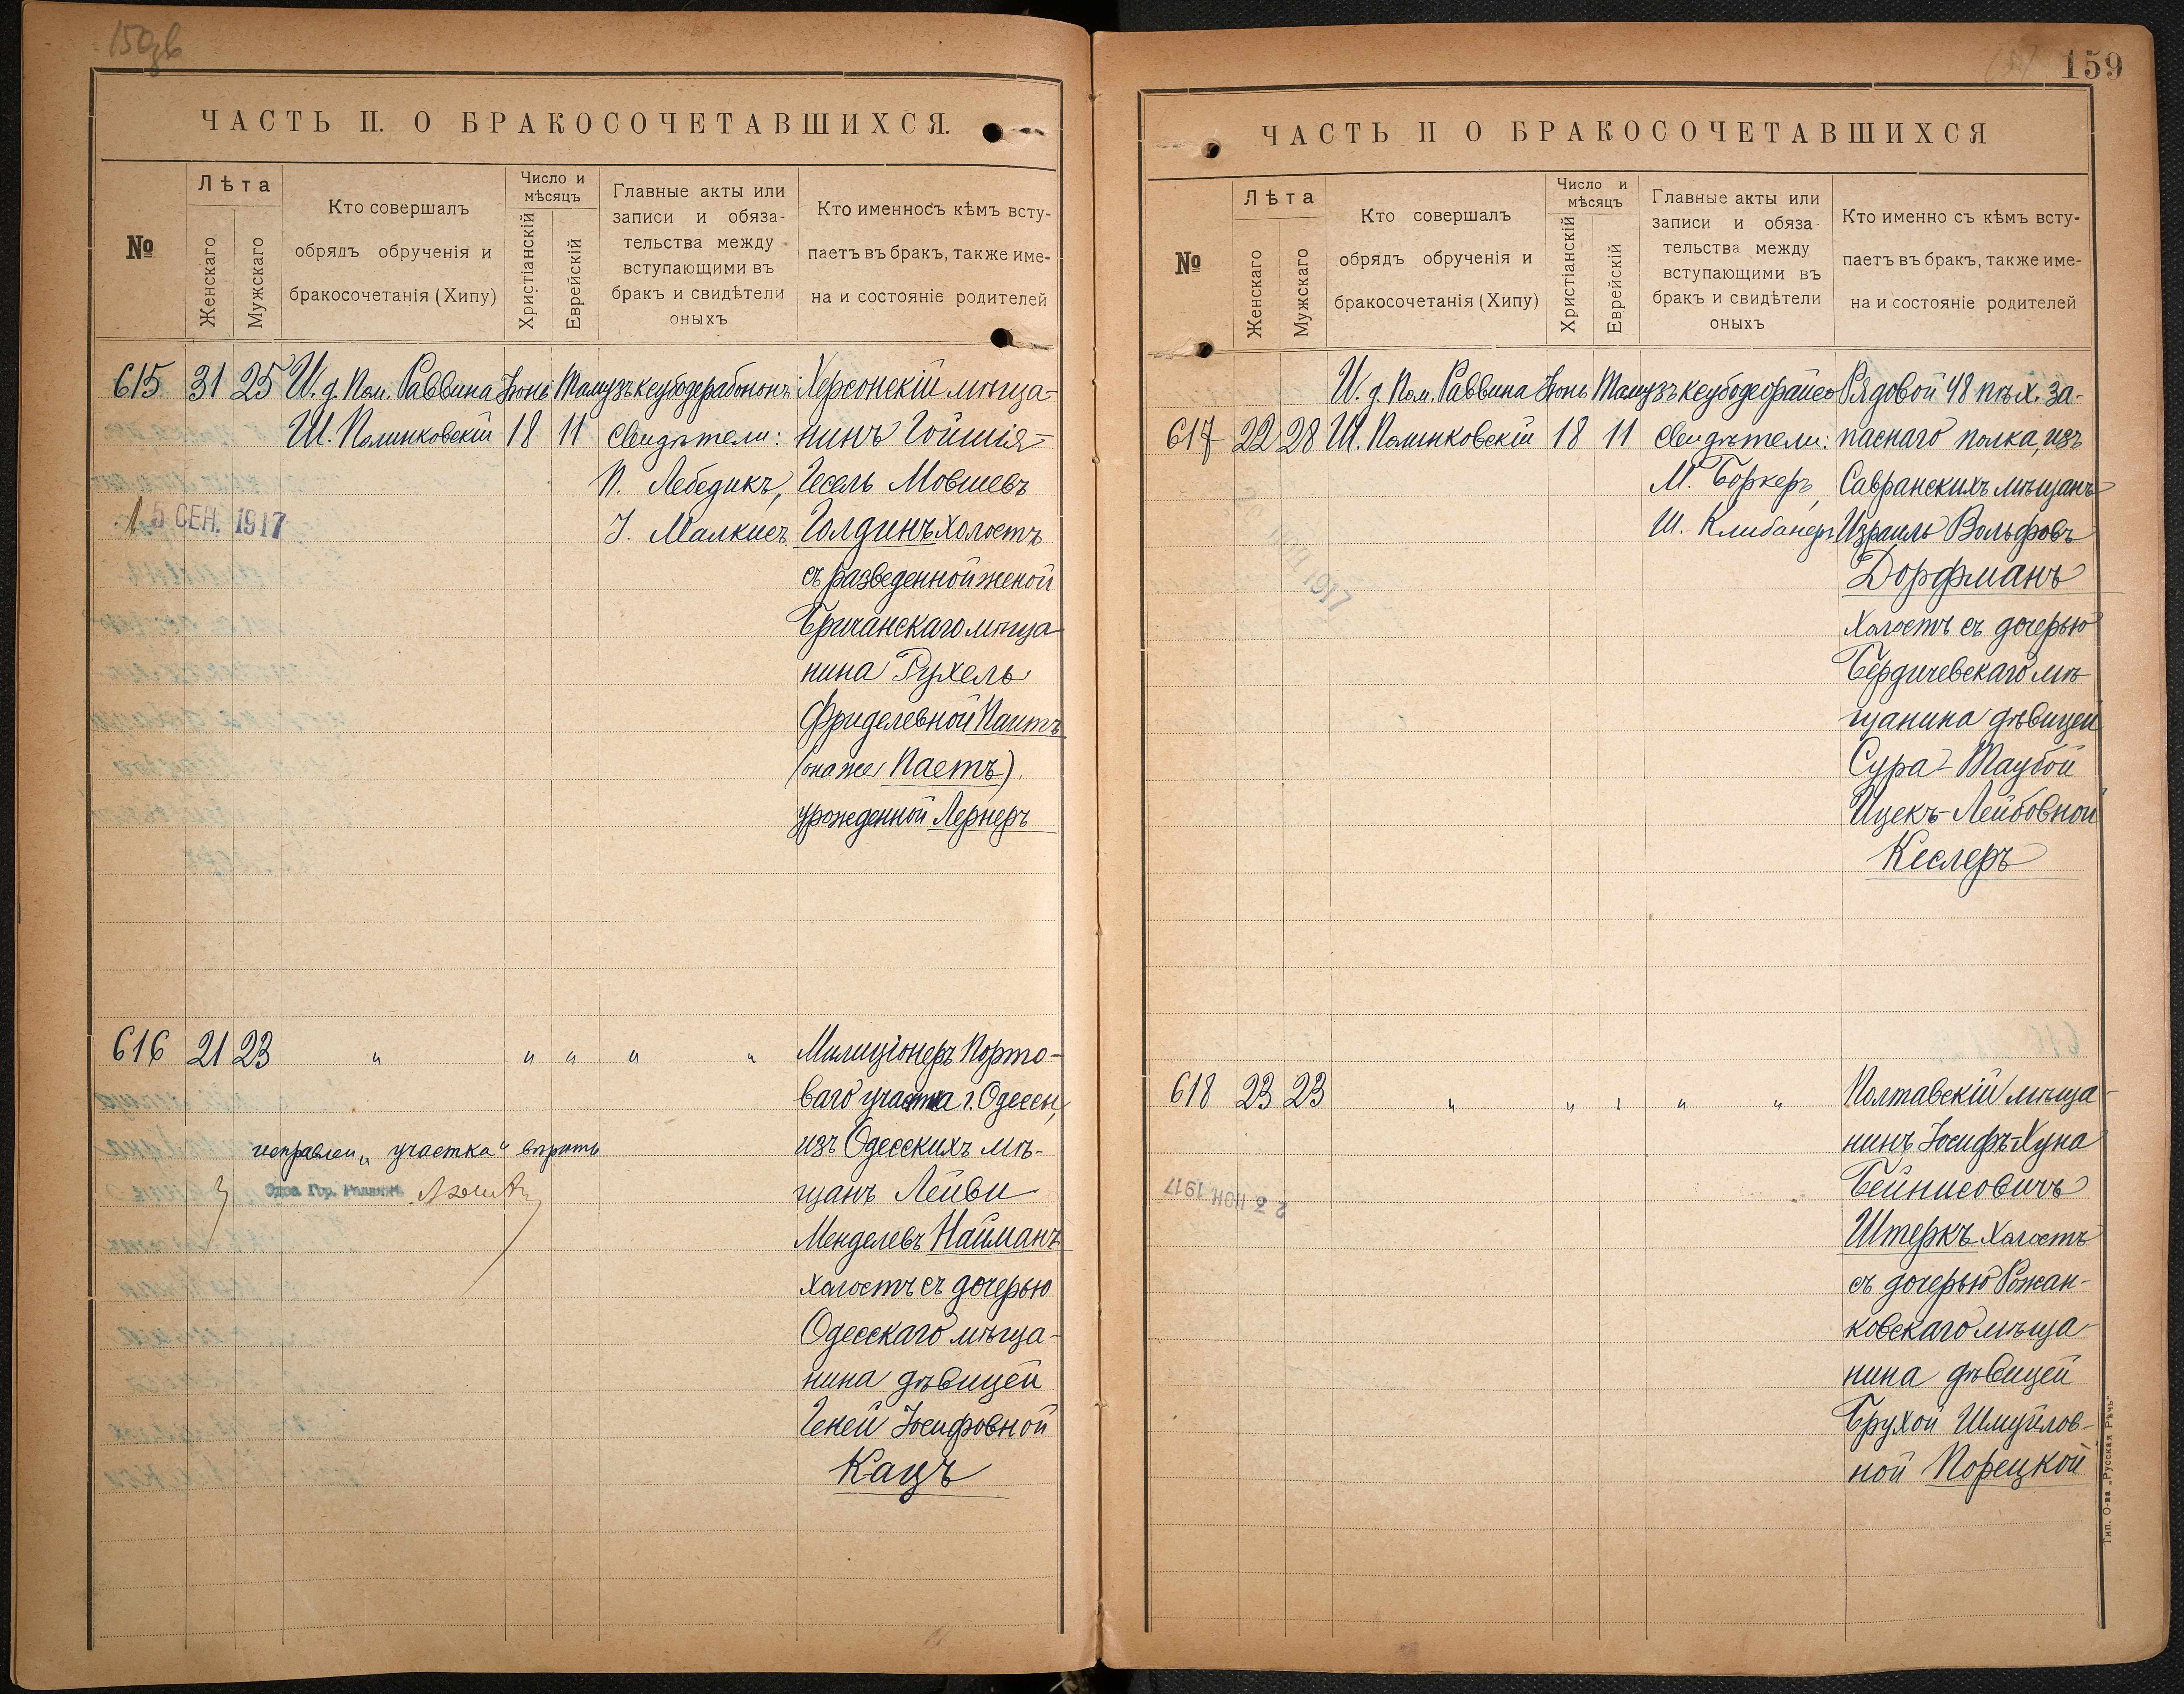 ЧАСТЬ II. О БРАКОСОЧЕТАВШИХСЯ.
№
Лѣта
Женскаго
Мужскаго
Кто совершалъ
обрядъ обрученія и
бракосочетанія (Хипу)
Число и
мѣсяцъ
Христіанскій
Еврейскій
Главные акты или
записи и обяза-
тельства между
вступающими въ
бракъ и свидѣтели
оныхъ
Кто именносъ кѣмъ всту-
паетъ въ бракъ, также име-
на и состояніе родителей
615 31 25 И. д. Пом. Раввина Іюнь Тамузъ Херсонскій мѣща-
Ш. Полинковскій 18 11 свидѣтели: нинъ Гойшія-
П. Лебедикъ, Гесель Мовшевъ
15 СЕН. 1917
І. Малкисъ. Голдинъ холостъ
съ разведенной женой
Бричанскаго мѣща
нина Рухель
Фриделевной Паитъ
(она же Паетъ)
урожденной Лернеръ
616 21 23 " " " " " Милиціонеръ Порто-
ваго участка г. Одессы,
исправлен. „участка" вѣрить
изъ Одесскихъ мѣ-
щанъ Лейви
Менделевъ Найманъ
холостъ съ дочерью
Одесскаго мѣща-
нина дѣвицей
Геней Іосифовной
Кацъ
159
ЧАСТЬ II О БРАКОСОЧЕТАВШИХСЯ
№
Лѣта
Женскаго
Мужскаго
Кто совершалъ
обрядъ обрученія и
бракосочетанія (Хипу)
Число и
мѣсяцъ
Христіанскій
Еврейскій
Главные акты или
записи и обяза-
тельства между
вступающими въ
бракъ и свидѣтели
оныхъ
Кто именно съ кѣмъ всту-
паетъ въ бракъ, также име-
на и состояніе родителей
И. д. Пом. Раввина Іюнь Тамузъ Рядовой 48 пѣх. за-
617 22 28 Ш. Полинковскій 18 11 свидѣтели: паснаго полка, изъ
М. Боркеръ, Савранскихъ мѣщанъ
Ш. Клибанеръ Израиль Вольфовъ
Дорфманъ
холостъ съ дочерью
Бердичевскаго мѣ-
щанина дѣвицей
Сура-Таубой
Ицекъ-Лейбовной
Кеслеръ
618 23 23 " " " " " Полтавскій мѣща-
нинъ Іосифъ-Хуна
Бейнисовичъ
23 ІЮН. 1917
Штеркъ холостъ
съ дочерью Рожан-
ковскаго мѣща-
нина дѣвицей
Брухой Шмуйлов-
ной Порецкой
Тип. О-ва „Русская Рѣчь"